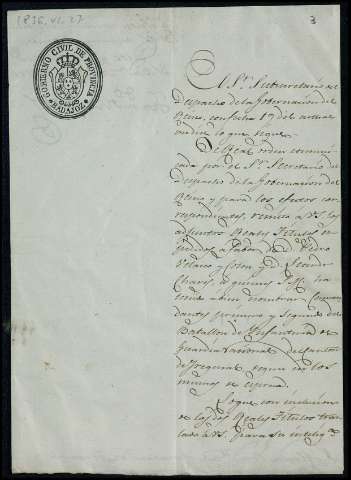 1836, VI, 27
3
GOBIERNO CIVIL DE PROVINCIA
BADAJOZ
El Sr. Subsecretario del
Despacho de la Gobernacion del
Reino, con fecha 17 del actual
me dice lo que sigue.
De Real orden comuni-
cada por el Sr. Secretario del
Despacho de la Gobernacion del
Reino y para los efectos cor-
respondientes, remito a V.S. los
adjuntos Reales Titulos es-
pedidos a favor de D. Pedro
Velasco y D.
a quienes S.M. ha
tenido a bien nombrar Coman-
dantes primero y segundo del
Batallon de Infanteria de
Guardia Nacional del canton
de Fregenal, segun en los
mismos se espresa.
Lo que con inclusion
de los dos Reales Titulos tras-
lado a V.S. para su intelig.a